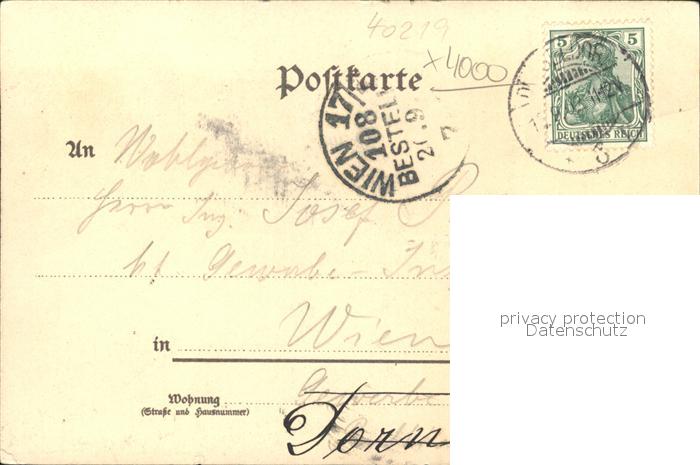 40219
x4000
Postkarte
5 5
DEUTSCHES REICH
WIEN 17/
108
BESTEL
20.9
7
An Wohlge
Herrn Ing. Josef
kk Gewerbe-Ins
in Wien
Wohnung
(Straße und Hausnummer)
Gewerbe
Dorn
privacy protection
Datenschutz